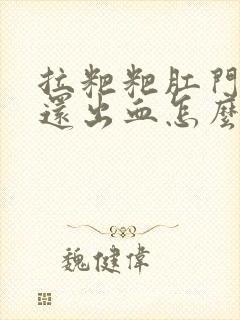 拉粑粑肛門
還出血怎麼
魏健偉